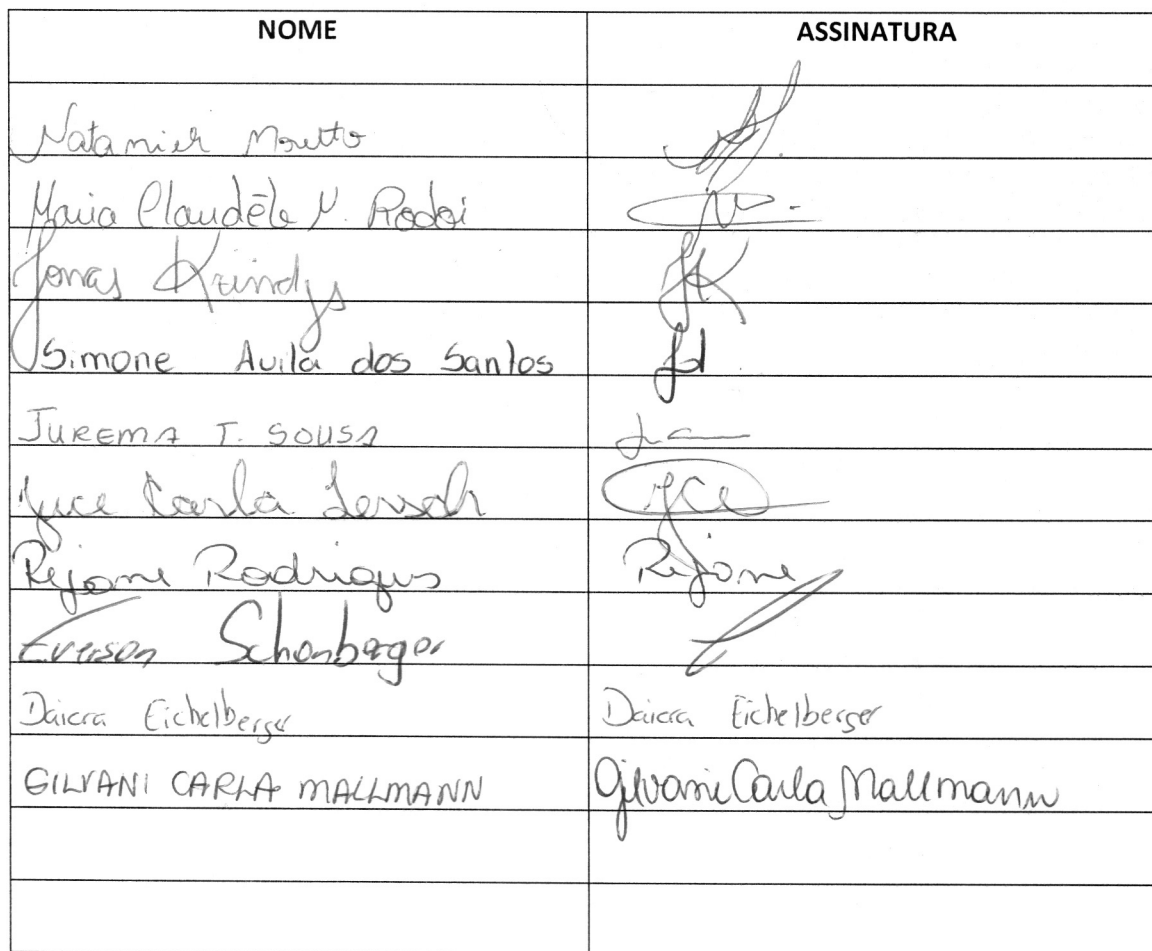 NOME ASSINATURA
Moretto
Maria Claudēte
Jonas Krindgs JK
Simone Avila dos Santos Sd
JUREMA T. SOUSA
Carla Lersch
Rejane Rodrigues Rejane
Everson Schonberger
Daiara Eichelberger Daiara Eichelberger
GILVANI CARLA MALLMANN Gilvani Carla Mallmann